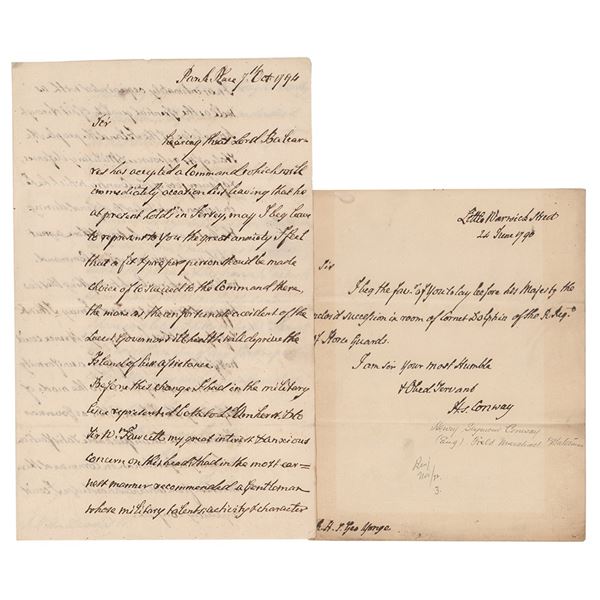 Park Place 7th Oct 1794
Sir
hearing that Lord Balcar=
=res has accepted a Command which will
immediately occation his leaving that he
at present holds in Jersey, may I beg leave
to represent to You the great anxiety I feel
that a fit & proper person should be made
choice of to succeed to the Command there,
the more as the unfortunate accident of the
Lieut Governors ill health will deprive the
Island of his assistance
Before this change I had in the military
line represented both to Ld Amherst & to
Sir Wm Fawcett my great interest & anxious
concern on this head & had in the most ear=
=nest manner recommended a Gentleman
whose military talents, activity & character
Little Warwick Street
24 June 1790
Sir
I beg the favr of You to lay before his Majesty the
inclos'd succession in room of Cornet Dolphin of the R. Regt
of Horse Guards.
I am Sir Your most Humble
& Obed. Servant
H.S. Conway
Henry Seymour Conway
(Eng) Field Marshal
3.
Sr Geo Yonge